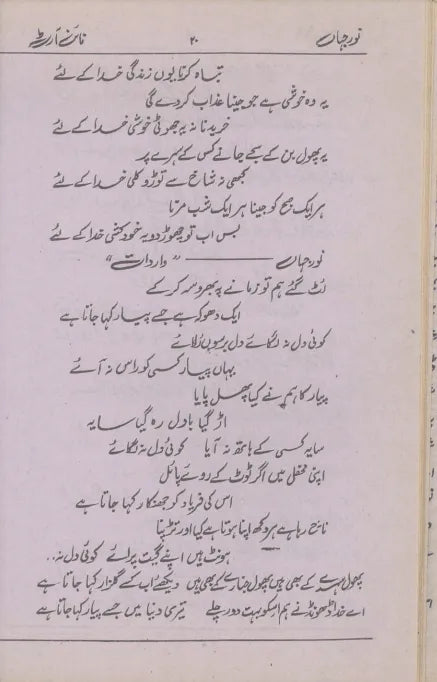 نورجہاں ۲۰ نائن آرٹ
تباہ کرنا یوں زندگی خدا کے لئے
یہ وہ خوشی ہے جو جینا عذاب کر دے گی
خریدنا نہ یہ جھوٹی خوشی خدا کے لئے
یہ پھول بن کے سجے جانے کس کے سہرے پر
کبھی نہ شاخ سے توڑو کلی خدا کے لئے
ہر ایک صبح کو جینا ہر ایک شب مرنا
بس اب تو چھوڑ دو یہ خودکشی خدا کے لئے
نورجہاں ——— "واردات"
لٹ گئے ہم تو زمانے پہ بھروسہ کر کے
ایک دھوکہ ہے جسے پیار کہا جاتا ہے
کوئی دل نہ لگائے دل برسوں رلائے
یہاں پیار کسی کو راس نہ آئے
پیار کا ہم نے کیا پھل پایا
اڑ گیا بادل رہ گیا سایہ
سایہ کسی کے ہاتھ نہ آیا کوئی دل نہ لگائے
اپنی محفل میں اگر ٹوٹ کے روئے پائل
اس کی فریاد کو جھنکار کہا جاتا ہے
ناچ رہا ہے ہر دکھ اپنا ہوتا ہے کیا اور تڑپنا
ہونٹ ہیں اپنے گیت پرائے کوئی دل نہ۔۔
پھول کے بھی ہیں پھول کے بھی ہیں دیکھئے اب کسے گلزار کہا جاتا ہے
اے خدا ڈھونڈنے ہم اس کو بہت دور چلے تیری دنیا میں جسے پیار کہا جاتا ہے